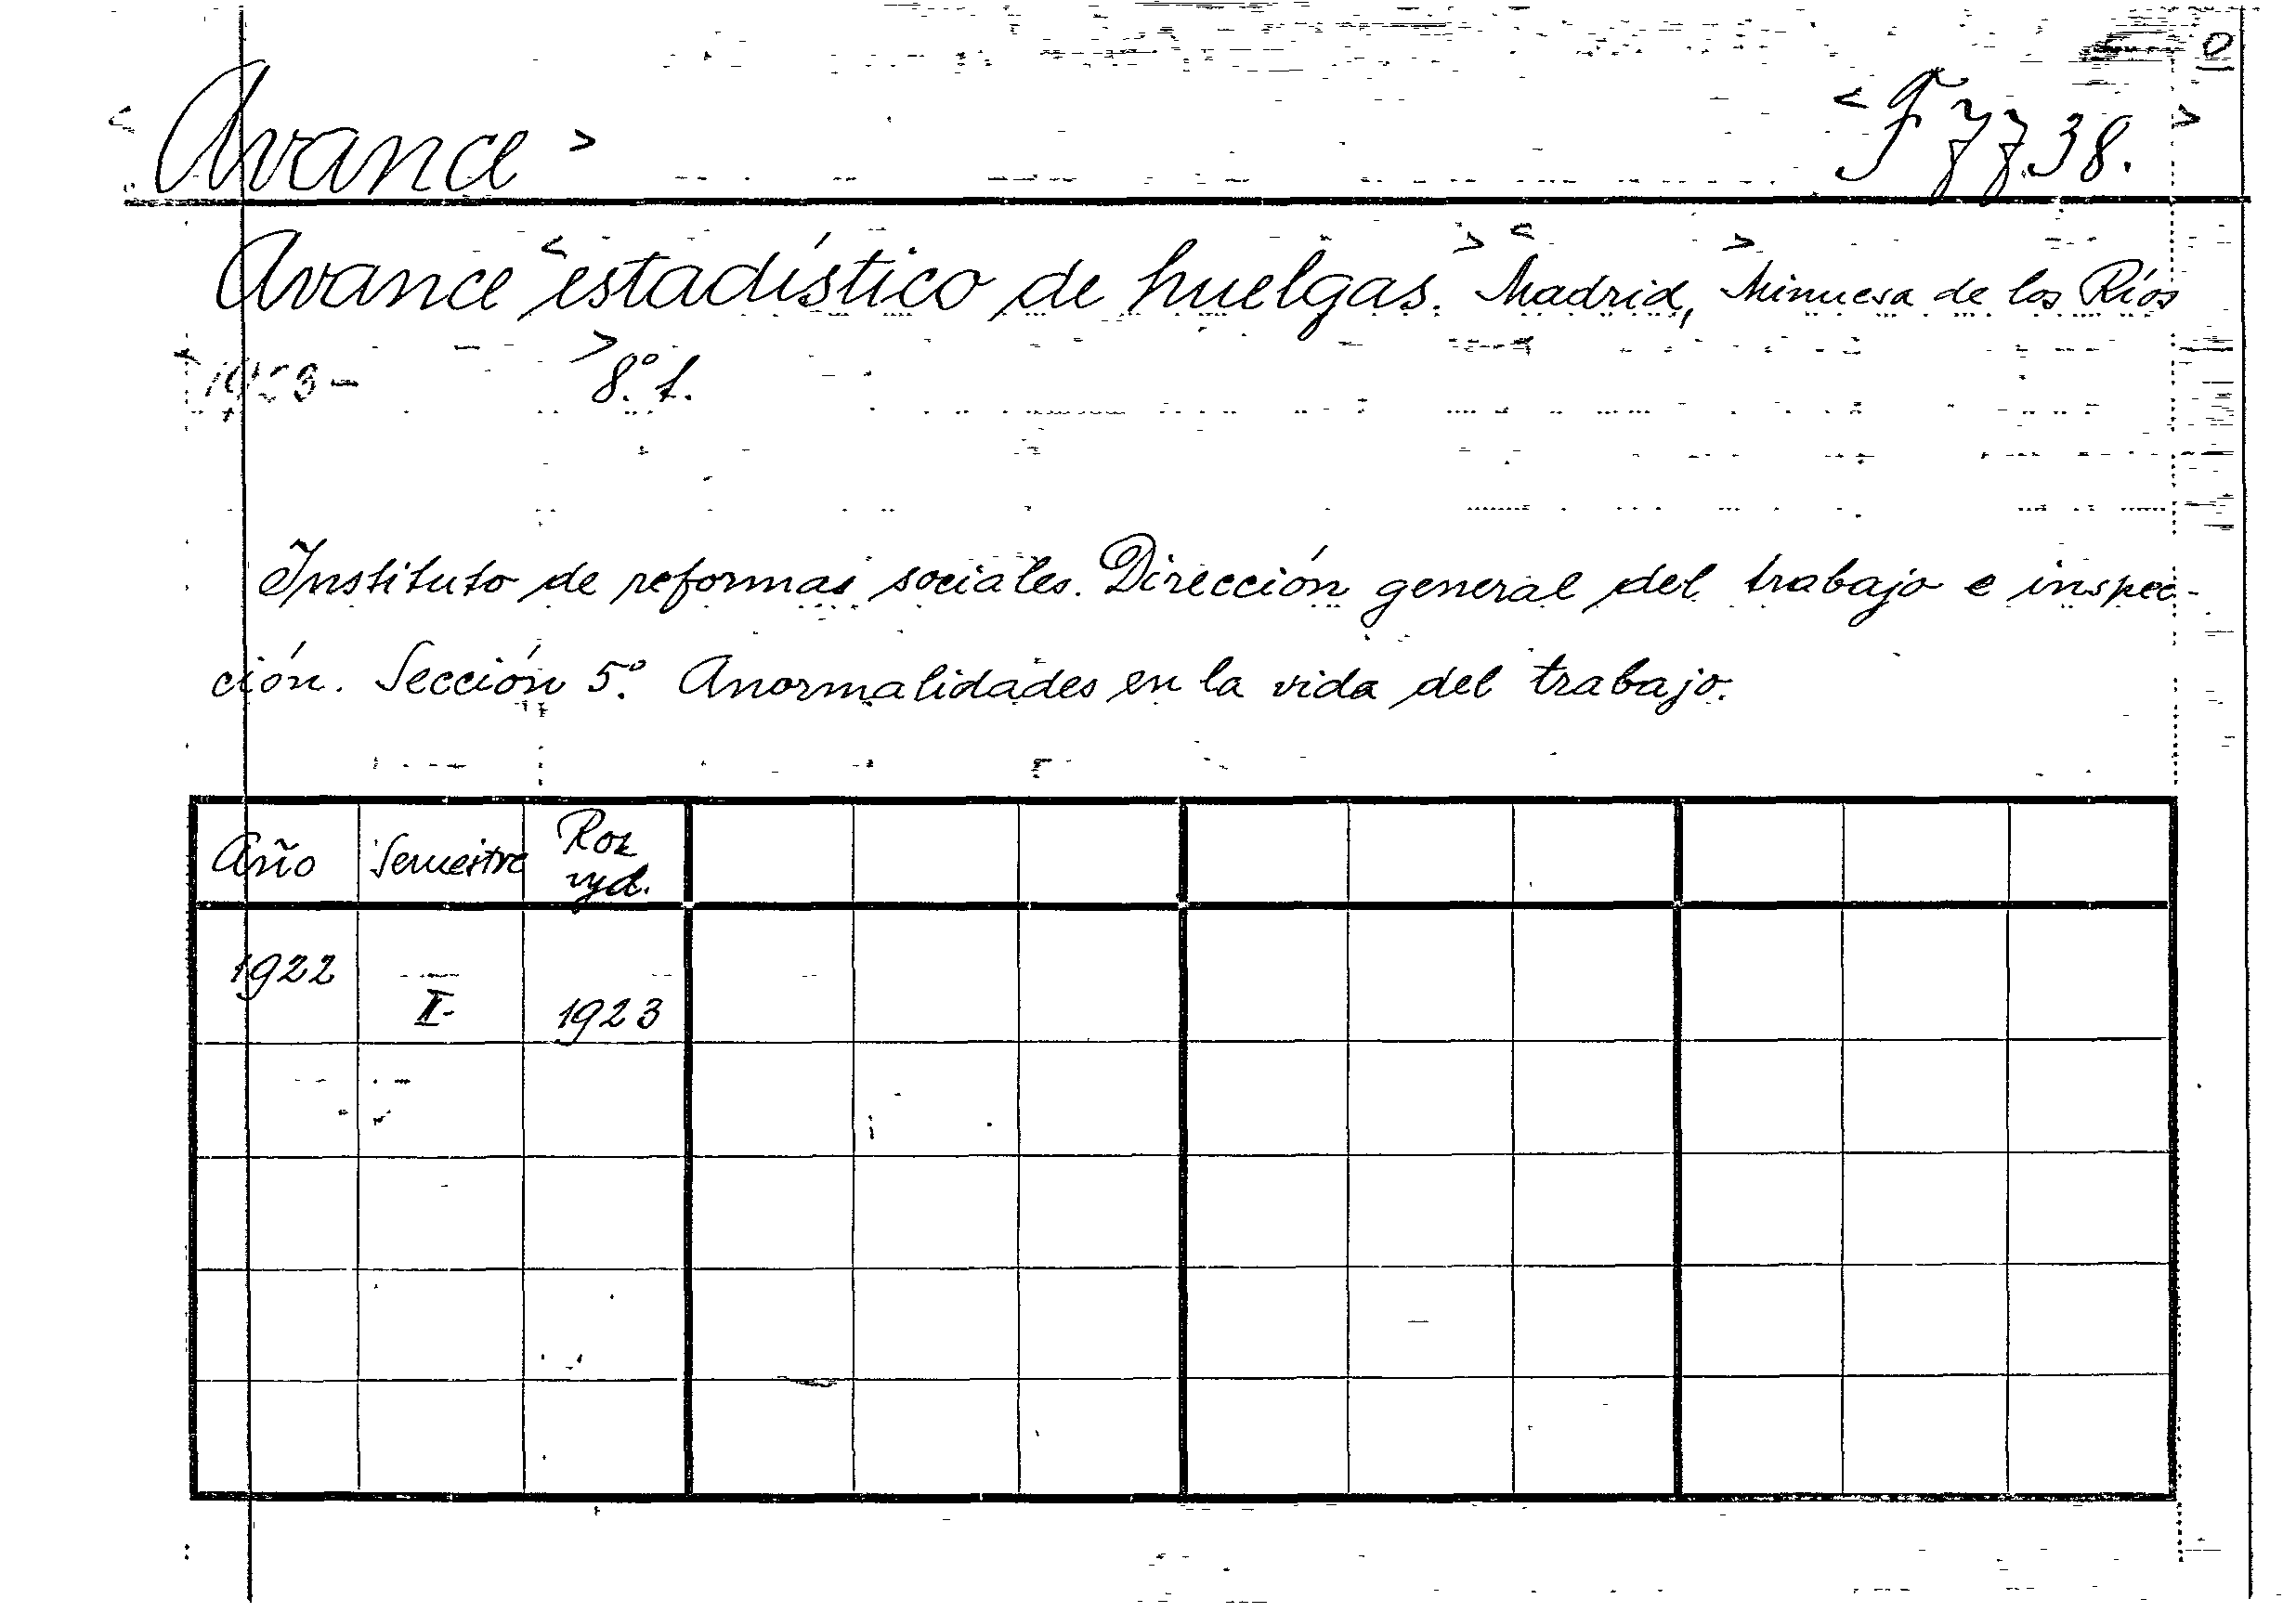 <Avance> <F 7738.>
Avance <estadístico de huelgas.> <Madrid, >Minuesa de los Ríos
1923- >8.º f.
Instituto de reformas sociales. Dirección general del trabajo e inspec-
ción. Sección 5.º Anormalidades en la vida del trabajo.
Año Semestre Rok
wyd.
1922
II- 1923